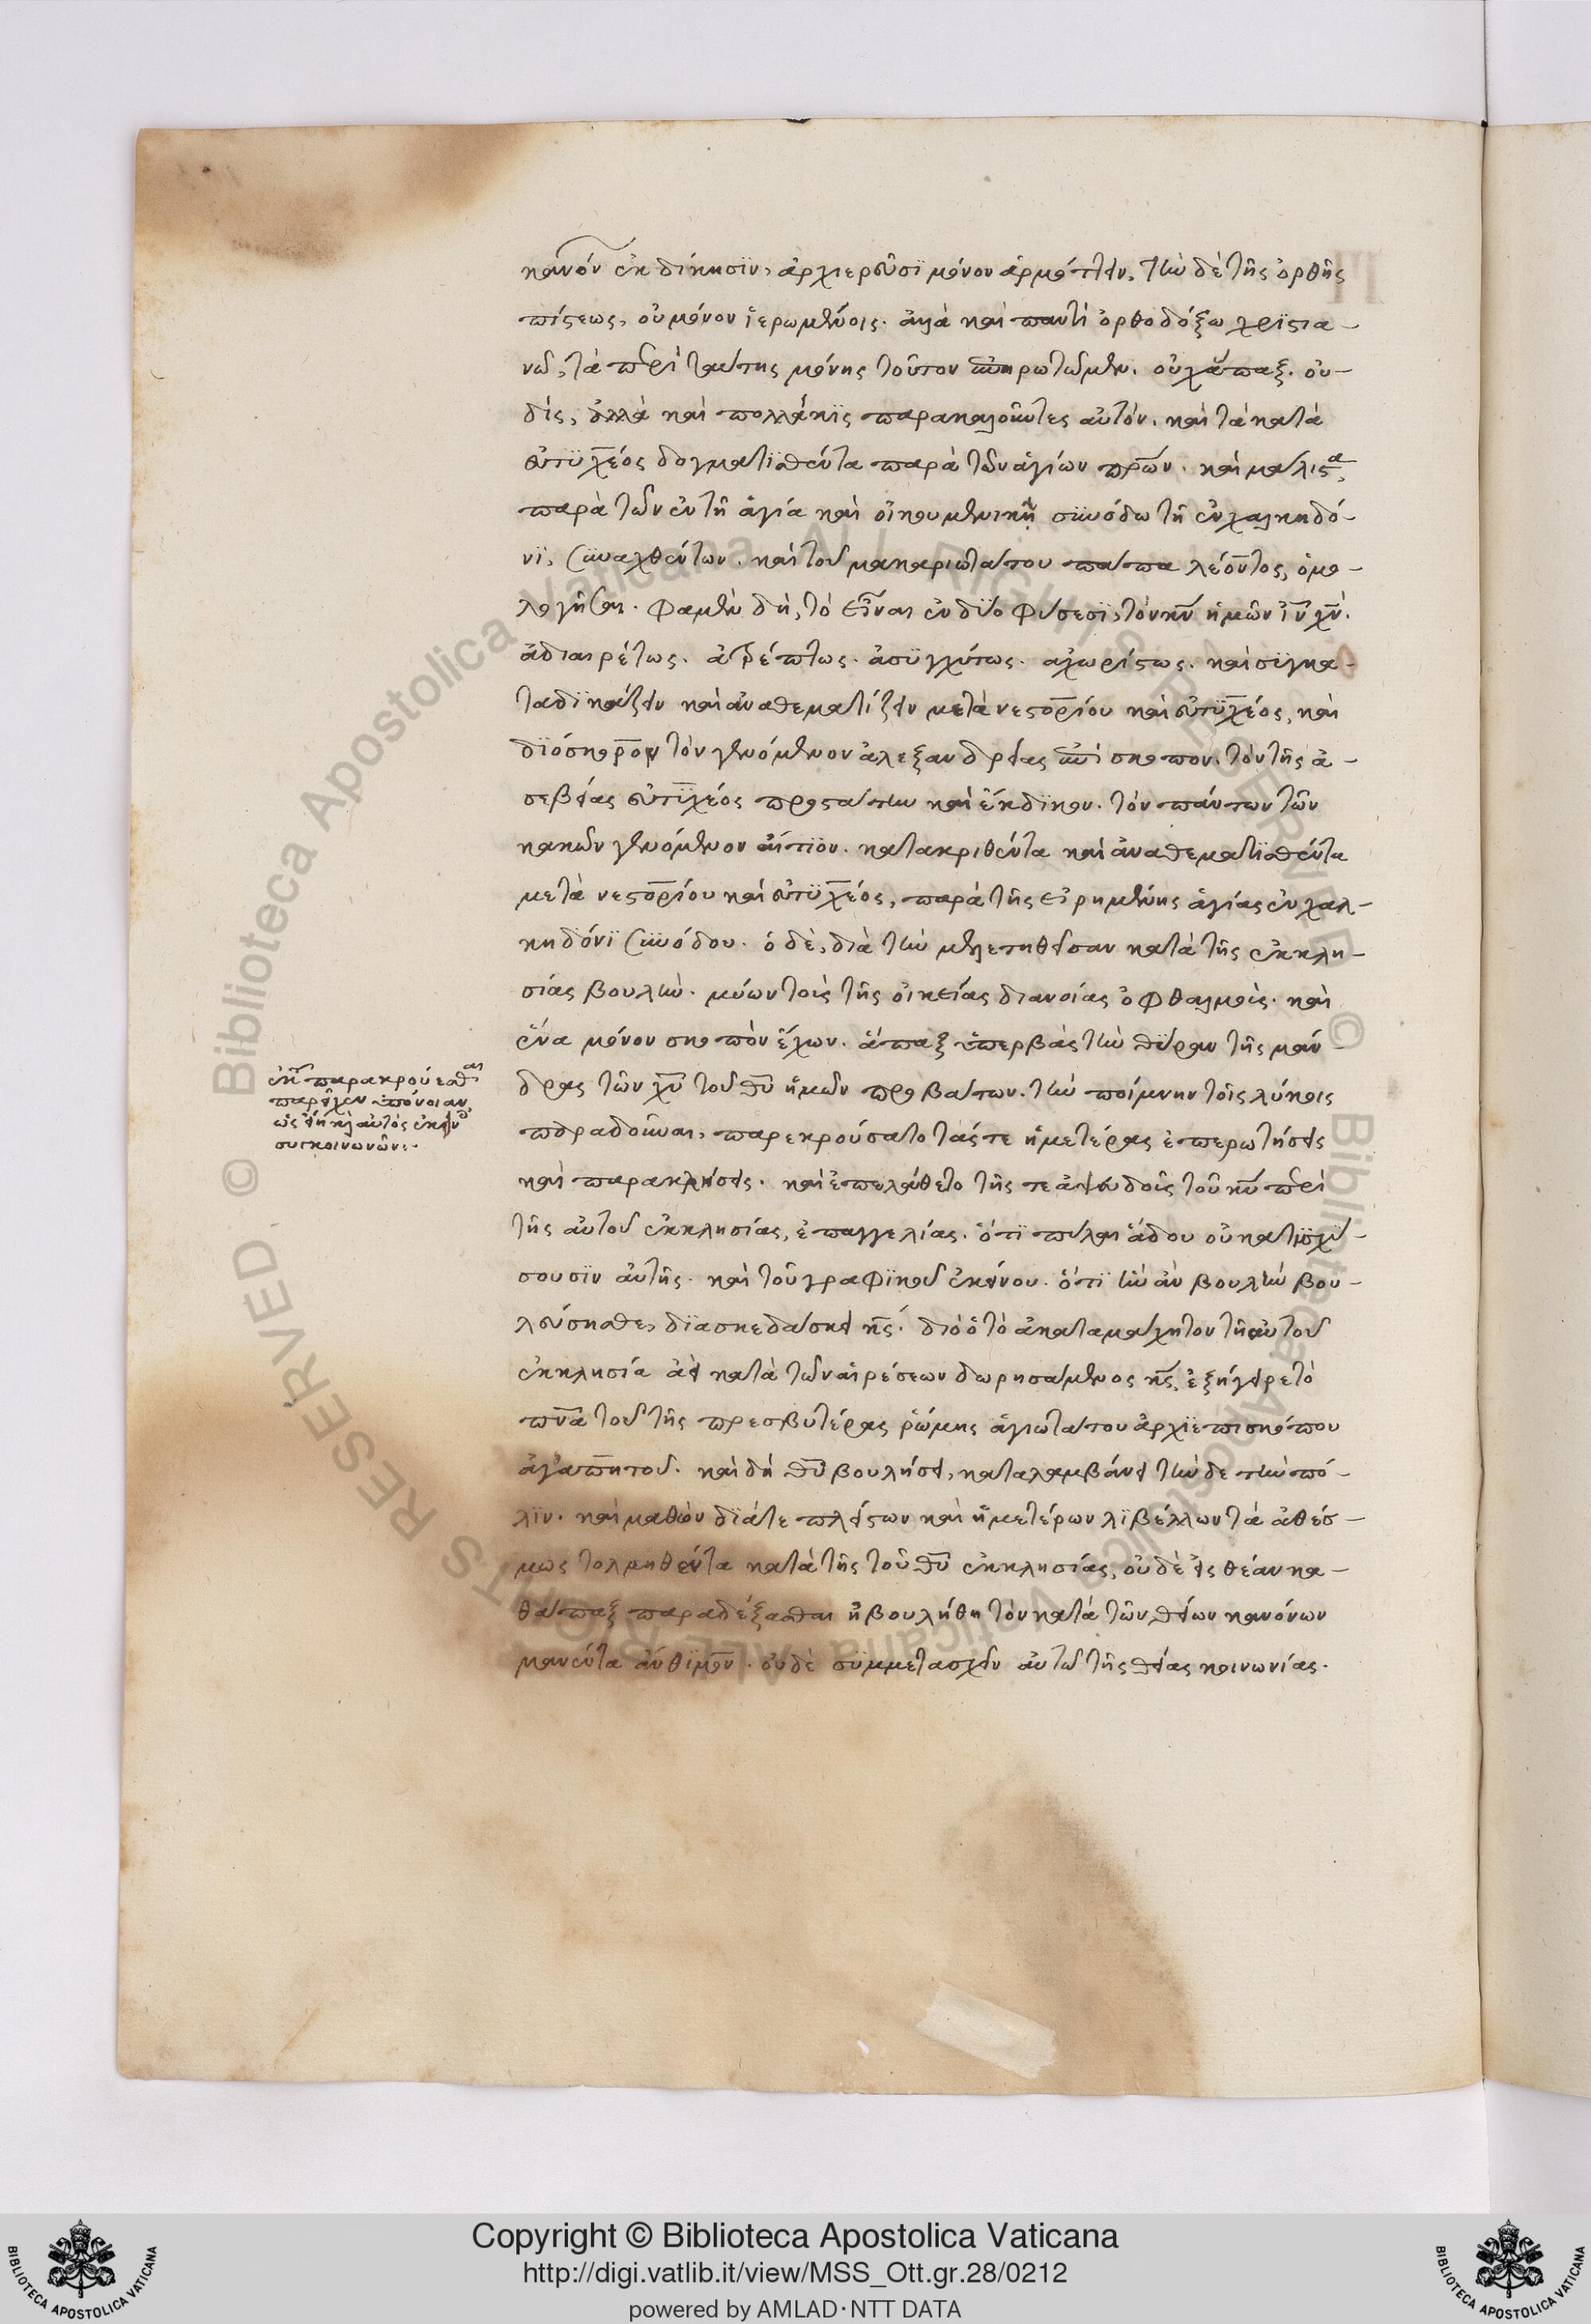 κανόν ἐκδίκησϊν, ἀρχιερεῦσϊ μόνον ἁρμόττειν, τὴν δὲ τῆς ὀρθῆς
πίστεως, οὐ μόνον ἱερωμένοις. ἀλλὰ καὶ παντὶ ὀρθοδόξω χρϊστια-
νῶ, τὰ περὶ ταύτης μόνης τοῦτον ἐπηρωτῶμεν. οὐχ ἅπαξ. οὐ-
δίς, ἀλλὰ καὶ πολλάκϊς παρακαλοῦντες αὐτόν. καὶ τὰ κατὰ
εὐτϋχέος δογματϊσθέντα παρὰ τῶν ἁγίων πρ̅ων. καὶ μάλιστα
παρὰ τῶν ἐν τῆ ἁγία καὶ οἰκουμενικῆ σϋνόδω τῆ ἐν χαλκηδό-
νϊ, σϋναχθέντων. καὶ τοῦ μακαριωτάτου πάπα λέοντος, ὁμο-
λογῆσαι. φαμὲν δὴ, τὸ εἶναι ἐν δϋο φύσεσϊ, τὸν κν̅ ἡμῶν ιν̅ χν̅.
ἀδιαιρέτως. ἀτρέπτως. ἀσϋγχύτως. ἀχωρίστως. καὶ σϋγκα-
ταδϊκάζειν καὶ ἀναθεματίζειν μετὰ νεστορίου καὶ εὐτϋχέος, καὶ
δϊόσκορον τὸν γενόμενον ἀλεξανδρείας ἐπίσκοπον. τὸν τῆς ἀ-
σεβείας εὐτϋχέος προστάτην καὶ ἔκδϊκον. τὸν πάντων τῶν
κακῶν γενόμενον αἴτϊον. κατακριθέντα καὶ ἀναθεματϊσθέντα
μετὰ νεστορίου καὶ εὐτϋχέος, παρὰ τῆς εἰρημένης ἁγίας ἐν χαλ-
κηδόνϊ σϋνόδου. ὁ δὲ, διὰ τὴν μελετηθεῖσαν κατὰ τῆς ἐκκλη-
σίας βουλὴν. μύων τοῖς τῆς οἰκείας διανοίας ὀφθαλμοῖς. καὶ
ἕνα μόνον σκοπὸν ἔχων. ἅπαξ ὑπερβὰς τὴν θϋραν τῆς μάν-
δρας τῶν χυ̅ τοῦ θυ̅ ἡμῶν προβάτων. τὴν ποίμνην τοῖς λύκοις
παραδοῦναι, παρεκρούσατο τάς τε ἡμετέρας ἐπερωτήσεις
καὶ παρακλήσεις. καὶ ἐπελάθετο τῆς τε ἀψευδοῦς τοῦ κυ̅ περὶ
τῆς αὐτοῦ ἐκκλησίας, ἐπαγγελίας. ὅτϊ πύλαι ἅδου οὐ κατϊσχϋ-
σουσϊν αὐτῆς. καὶ τοῦ γραφϊκοῦ ἐκείνου. ὅτϊ ἣν ἂν βουλὴν βου-
λεύσησθε, δϊασκεδάσει κς̅. διὸ ὁ τὸ ἀκαταμάχητον τῆ αὐτοῦ
ἐκκλησία ἀεὶ κατὰ τῶν αἱρέσεων δωρησάμενος κς̅, ἐξήγειρε τὸ
πν̅α τοῦ τῆς πρεσβυτέρας ῥώμης ἁγιωτάτου ἀρχϊεπισκόπου
ἀγαπητοῦ. καὶ δὴ θυ̅ βουλήσει, καταλαμβάνει τὴν δε τὴν πό-
λϊν. καὶ μαθὼν δϊά τε πλείστων καὶ ἡμετέρων λϊβέλλων τὰ ἀθέσ-
μως τολμηθέντα κατὰ τῆς τοῦ θυ̅ ἐκκλησίας, οὐδὲ εἰς θέαν κα-
θάπαξ παραδέξασθαι ἠβουλήθη τὸν κατὰ τῶν θείων κανόνων
μανέντα ἄνθϊμον. οὐδὲ σϋμμετασχεῖν αὐτῶ τῆς θείας κοινωνίας.
παρακρούεσθαι
παρεῖχεν ὑπόνοιαν
ὡς εἴη καὶ αὐτὸς ἐκείνοις
συγκοινωνῶν:
Copyright © Biblioteca Apostolica Vaticana
http://digi.vatlib.it/view/MSS_Ott.gr.28/0212
powered by AMLAD·NTT DATA